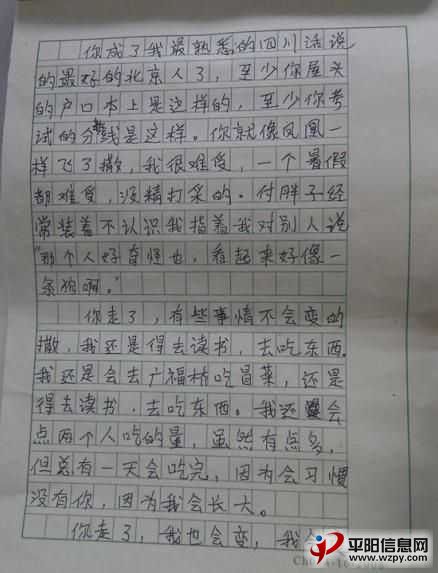 你成了我最熟悉的四川话说
的最好的北京人了，至少你屋头
的户口本上是这样的，至少你考
试的分数线是这样。你就像凤凰一
样飞了撒，我很难受，一个暑假
都难受，没精打采的。付胖子经
常装着不认识我指着我对别人说
“那个人好奇怪也，看起来好像一
条狗啊。”
你走了，有些事情不会变的
撒，我还是得去读书，去吃东西。
我还是会去广福桥吃冒菜，还是
得去读书，去吃东西。我还会
点两个人吃的量，虽然有点多，
但总有一天会吃完，因为会习惯
没有你，因为我会长大。
你走了，我也会变，我会
平阳信息网
www.wzpy.com